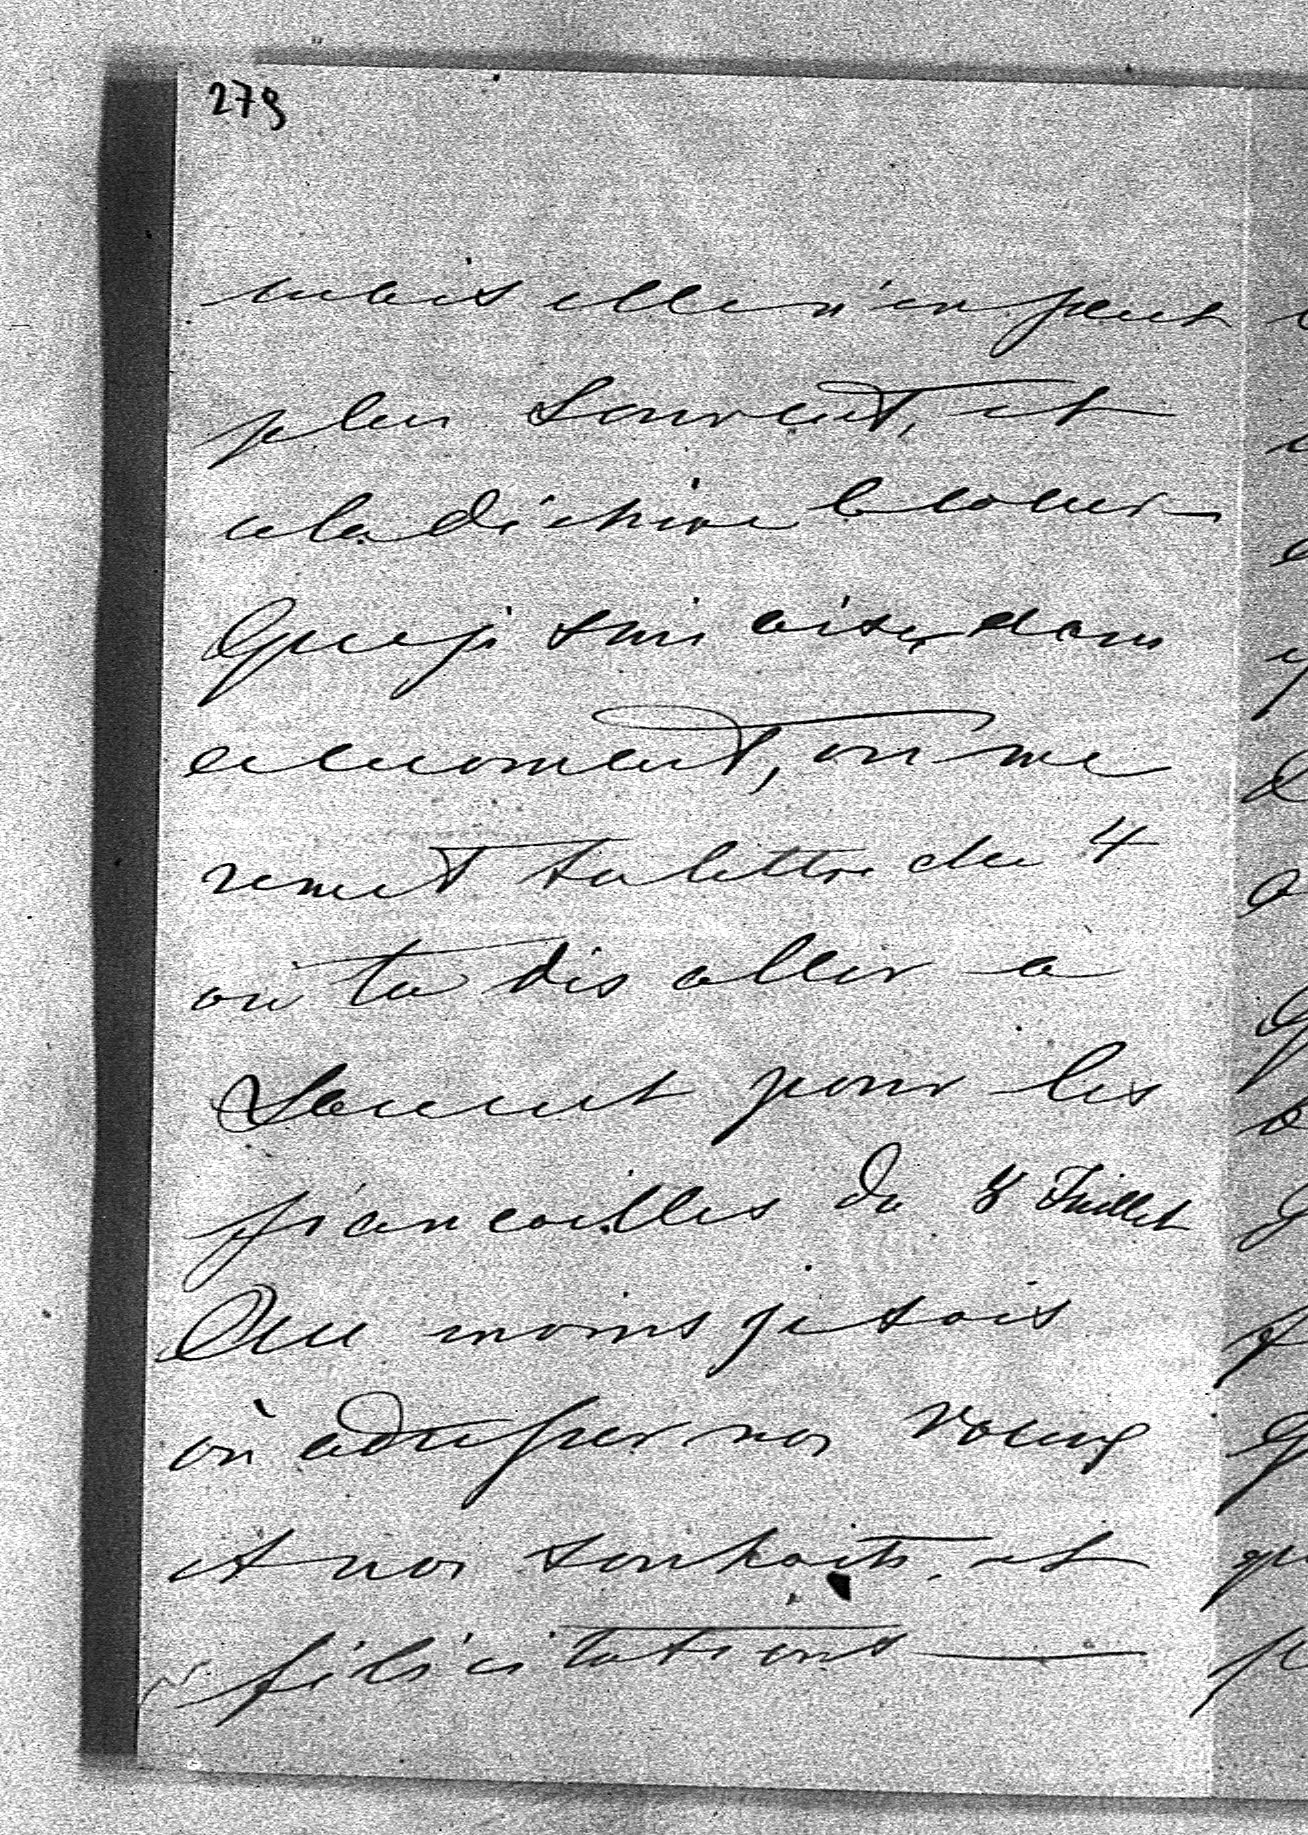 279
mais elle n'en peut
plus souvent, et
cela déchire le cœur
Que je suis aise, dans
ce moment, on me
remet ta lettre du 4
où tu dis aller a
pour les
fiancailles du 8 Juillet
Au moins je sais
où adresser nos vœux
et nos souhaits, et
félicitations —